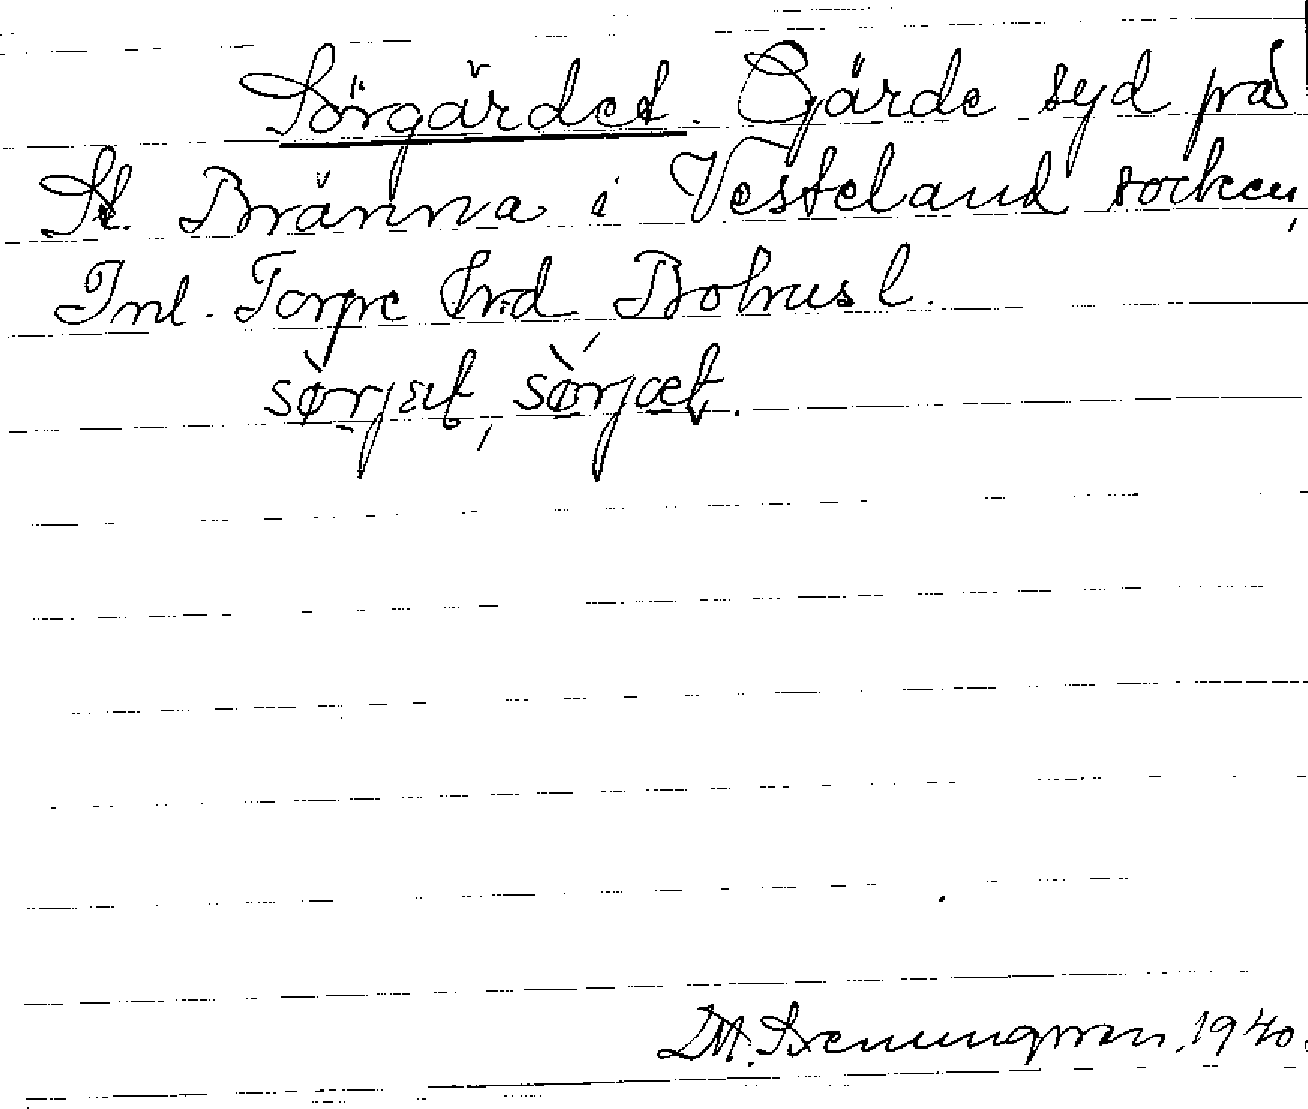 Sörgärdet. Gärde syd på
St. Bränna i Vesteland socken,
Inl. Torpe hrd, Bohusl.
sø̀rjæt, sø̀rjæt.
1940.